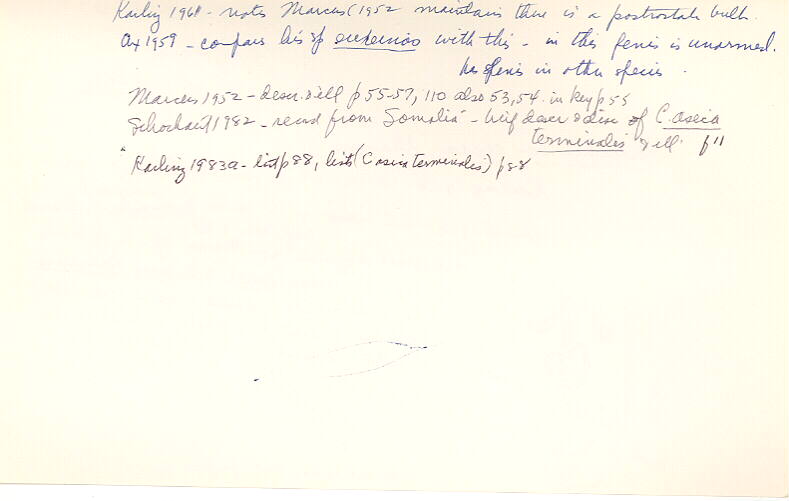 Karling 1964 - notes Marcus (1952 maintains there is a postrostral bulb.
Ax 1959 - compares his sp euxeinos with this - in this penis is unarmed.
has spenis in other species.
Marcus 1952 - descr. & ill p 55-57, 110 also 53, 54. in key p 55
Schockaert 1982 - record from Somalia - brief descr & disc of C. aseia
terminales & ill. p 11
Karling 1983a - list p 88, lists (C aseia terminales) p 88